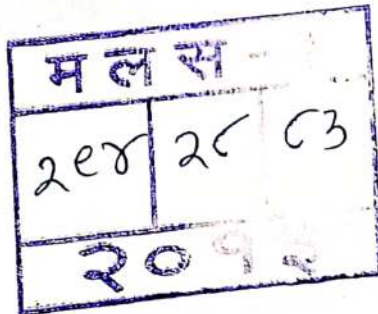 मलस
२९४ २८ ८३
२०१३